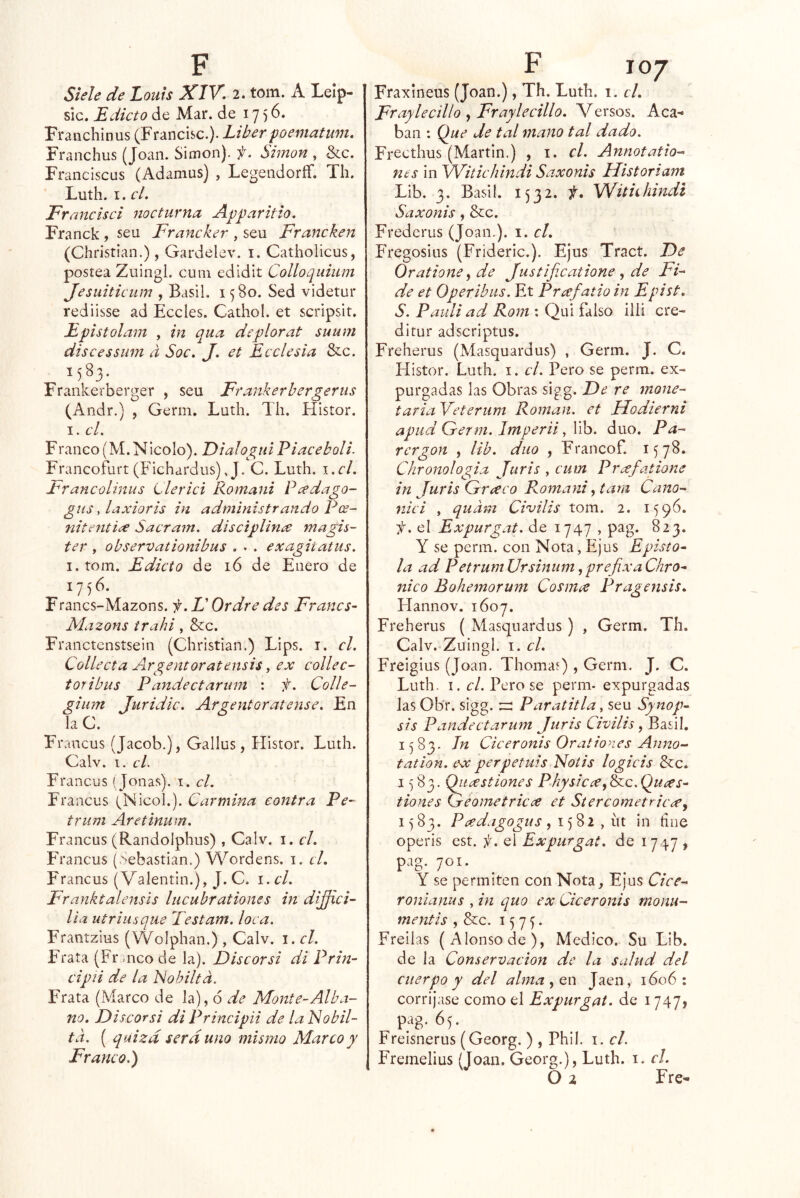 F
Siele de Louis XIV. 2. tom. A Leip-
sic. Edicto de Mar. de 1756.
Franchinus (Francisc.). Liber poematum.
Franchus (Joan. Simon). ℣. Simon, &c.
Franciscus (Adamus) , Legendorff. Th.
Luth. 1. cl.
Francisci nocturna Apparitio.
Franck, seu Francker, seu Francken
(Christian.), Gardelev. 1. Catholicus,
postea Zuingl. cum edidit Colloquium
Jesuiticum, Basil. 1580. Sed videtur
rediisse ad Eccles. Cathol. et scripsit.
Epistolam , in qua deplorat suum
discessum à Soc. J. et Ecclesia &c.
1583.
Frankerberger , seu Frankerbergerus
(Andr.) , Germ. Luth. Th. Histor.
1. cl.
Franco (M. Nicolo). Dialogui Piaceboli.
Francofurt (Fichardus), J. C. Luth. 1. cl.
Francolinus Clerici Romani Pædago-
gus, laxioris in administrando Pœ-
nitentiæ Sacram. disciplinæ magis-
ter , observationibus . . . exagitatus.
1. tom. Edicto de 16 de Enero de
1756.
Francs-Mazons. ℣. L'Ordre des Francs-
Mazons trahi, &c.
Franctenstsein (Christian.) Lips. 1. cl.
Collecta Argentoratensis, ex collec-
toribus Pandectarum : ℣. Colle-
gium Juridic. Argentoratense. En
la C.
Francus (Jacob.), Gallus, Histor. Luth.
Calv. 1. cl.
Francus (Jonas). 1. cl.
Francus (Nicol.). Carmina contra Pe-
trum Aretinum.
Francus (Randolphus) , Calv. 1. cl.
Francus (Sebastian.) Wordens. 1. cl.
Francus (Valentin.), J. C. 1. cl.
Franktalensis lucubrationes in diffici-
lia utriusque Testam. loca.
Frantzius (Wolphan.), Calv. 1. cl.
Frata (Franco de la). Discorsi di Prin-
cipii de la Nobiltà.
Frata (Marco de la), ó de Monte-Alba-
no. Discorsi di Principii de la Nobil-
tà. ( quizá será uno mismo Marco y
Franco.)
F 107
Fraxineus (Joan.), Th. Luth. 1. cl.
Fraylecillo, Fraylecillo. Versos. Aca-
ban : Que de tal mano tal dado.
Frecthus (Martin.) , 1. cl. Annotatio-
nes in Witichindi Saxonis Historiam
Lib. 3. Basil. 1532. ℣. Witichindi
Saxonis, &c.
Frederus (Joan.). 1. cl.
Fregosius (Frideric.). Ejus Tract. De
Oratione, de Justificatione, de Fi-
de et Operibus. Et Præfatio in Epist.
S. Pauli ad Rom : Qui falso illi cre-
ditur adscriptus.
Freherus (Masquardus) , Germ. J. C.
Histor. Luth. 1. cl. Pero se perm. ex-
purgadas las Obras sigg. De re mone-
taria Veterum Roman. et Hodierni
apud Germ. Imperii, lib. duo. Pa-
rergon , lib. duo , Francof. 1578.
Chronologia Juris, cum Præfatione
in Juris Græco Romani, tam Cano-
nici , quàm Civilis tom. 2. 1596.
℣. el Expurgat. de 1747, pag. 823.
Y se perm. con Nota, Ejus Episto-
la ad Petrum Ursinum, prefixa Chro-
nico Bohemorum Cosmæ Pragensis.
Hannov. 1607.
Freherus ( Masquardus ) , Germ. Th.
Calv. Zuingl. 1. cl.
Freigius (Joan. Thomas), Germ. J. C.
Luth. 1. cl. Pero se perm. expurgadas
las Obr. sigg. = Paratitla, seu Synop-
sis Pandectarum Juris Civilis, Basil.
1583. In Ciceronis Orationes Anno-
tation. ex perpetuis Notis logicis &c.
1583. Quæstiones Physicæ, &c. Quæs-
tiones Geometricæ et Stercometricæ,
1583. Pædagogus, 1582, ùt in fine
operis est. ℣. el Expurgat. de 1747,
pag. 701.
Y se permiten con Nota, Ejus Cice-
ronianus, in quo ex Ciceronis monu-
mentis, &c. 1575.
Freilas (Alonso de), Medico. Su Lib.
de la Conservacion de la salud del
cuerpo y del alma, en Jaen, 1606 :
corrijase como el Expurgat. de 1747,
pag. 65.
Freisnerus (Georg. ) , Phil. 1. cl.
Fremelius (Joan. Georg.), Luth. 1. cl.
O 2 Fre-